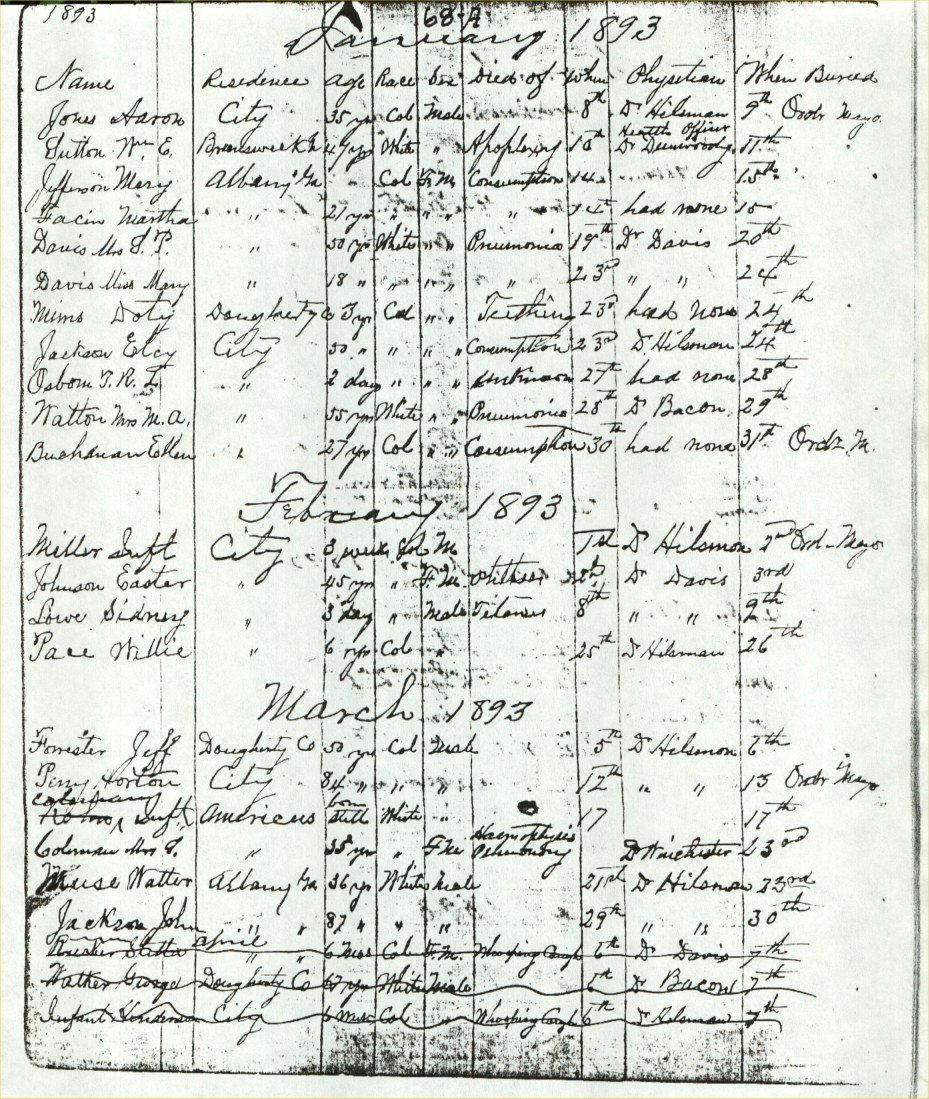 1893
68-A
January 1893
Name Residence age Race Sex Died of When Physetian When Buried
Jones Aaron City 35 yr Col Male 8th Dr Hilsman 9th Ordr Mayo.
Health Officer
Sutton Wm E. Brunsweick Ga 47 yrs White " Apoplexy 10th Dr Dunwoody 11th
Jefferson Mary Albany Ga Col F. M. Consumption 14 15th
Facin Martha " 21 yrs " " " " 14th had none 15
Davis Mrs S. P. " 50 yrs White " " Pneumonia 19th Dr Davis 20th
Davis Miss Mary " 18 " " " " " 23rd " " 24th
Mims Doty Dougherty Co 3 yr Col " " Teething 23rd had none 24th
Jackson Elcy City 50 " " " " Consumption 23rd Dr Hilsman 24th
Osborn T. R. I. " 2 days " " " unknown 27th had none 28th
Watton Mrs M. A. " 55 yrs White " " Pneumonia 28th Dr Bacon 29th
Buchanan Ellen " 27 yrs Col " " Consumption 30th had none 31st Ordr M.
February 1893
Miller Inft City 3 weeks Col M 1st Dr Hilsmon 2nd Ord - Mayo
Johnson Easter " 45 yrs " F. M. Dr Davis 3rd
Lowe Sidney " 3 day " Male Titanus 8th " " 9th
Pace Willie " 6 yrs Col " 25th Dr Hilsman 26th
March 1893
Forrester Jeff Dougherty Co 50 yrs Col Male 5th Dr Hilsmon 6th
Horton City 84 " " " 12th " " 13 Ordr Mayo
Coleman born
Inft Americus still White " 17 17th
Haemophysis
Coleman Mrs " 35 yrs " F Me Pulmonory Dr Winchester 23rd
Muse Watter Albany Ga 36 yrs White Male 21st Dr Hilsmon 23rd
Jackson John " " 87 " " " 29th " " 30th
April
" " 6 mos Col F. M. Whooping Cough 6th Dr Davis 7th
Wather George Dougherty Co 67 yrs White Male 6th Dr Bacon 7th
Infant Henderson City 6 mos Col " Whooping Cough 6th Dr Hilsman 7th